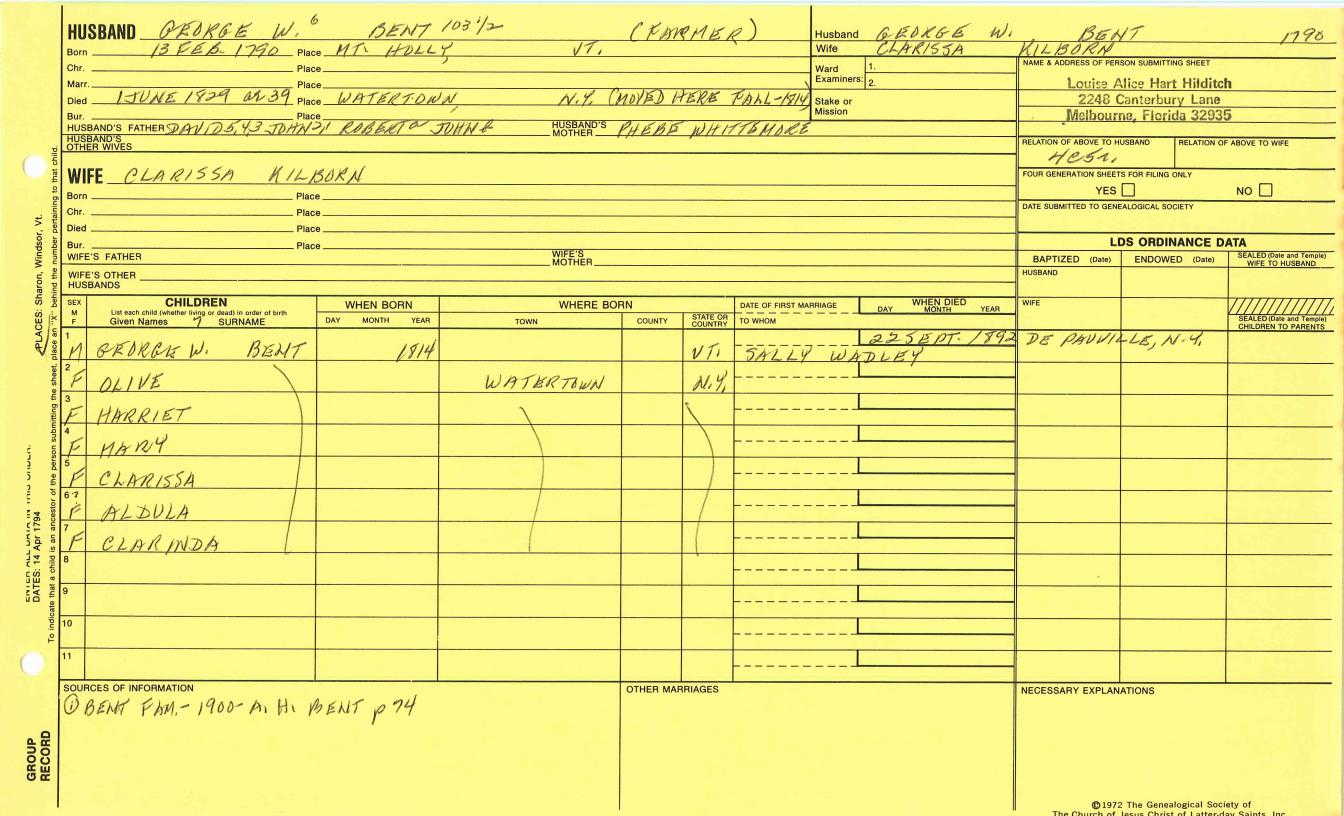 HUSBAND GEORGE W. 6 BENT 103 1/2 (FARMER)
Born 13 FEB 1790 Place MT. HOLLY, VT.
Chr. Place
Marr. Place
Died 1 JUNE 1829 OR 39 Place WATERTOWN, N.Y. (MOVED HERE FALL-1814)
Bur. Place
HUSBAND'S FATHER DAVID 5,43 JOHN 21 ROBERT JOHN HUSBAND'S MOTHER PHEBE WHITTEMORE
HUSBAND'S OTHER WIVES
Husband GEORGE W. BENT 1790
Wife CLARISSA KILBORN
Ward Examiners: 1.
2.
Stake or Mission
NAME & ADDRESS OF PERSON SUBMITTING SHEET
Louise Alice Hart Hilditch
2248 Canterbury Lane
Melbourne, Florida 32935
RELATION OF ABOVE TO HUSBAND RELATION OF ABOVE TO WIFE
FOUR GENERATION SHEETS FOR FILING ONLY
YES NO
DATE SUBMITTED TO GENEALOGICAL SOCIETY
WIFE CLARISSA KILBORN
Born Place
Chr. Place
Died Place
Bur. Place
WIFE'S FATHER WIFE'S MOTHER
WIFE'S OTHER HUSBANDS
LDS ORDINANCE DATA
BAPTIZED (Date) ENDOWED (Date) SEALED (Date and Temple) WIFE TO HUSBAND
HUSBAND
WIFE
SEALED (Date and Temple) CHILDREN TO PARENTS
SEX M F
CHILDREN
List each child (whether living or dead) in order of birth
Given Names 7 SURNAME
WHEN BORN
DAY MONTH YEAR
WHERE BORN
TOWN COUNTY STATE OR COUNTRY
DATE OF FIRST MARRIAGE
TO WHOM
WHEN DIED
DAY MONTH YEAR
1 M GEORGE W. BENT 1814 VT. SALLY WADLEY 22 SEPT. 1892 DE PAUVILLE, N.Y.
2 F OLIVE WATERTOWN N.Y.
3 F HARRIET
4 F MARY
5 F CLARISSA
6 F ALDULA
7 F CLARINDA
8
9
10
11
SOURCES OF INFORMATION
① BENT FAM.- 1900- A. H. BENT p 74
OTHER MARRIAGES
NECESSARY EXPLANATIONS
PLACES: Sharon, Windsor, Vt.
DATES: 14 Apr 1794
To indicate that a child is an ancestor of the person submitting the sheet, place an "X" behind the number pertaining to that child.
GROUP RECORD
©1972 The Genealogical Society of
The Church of Jesus Christ of Latter-day Saints, Inc.